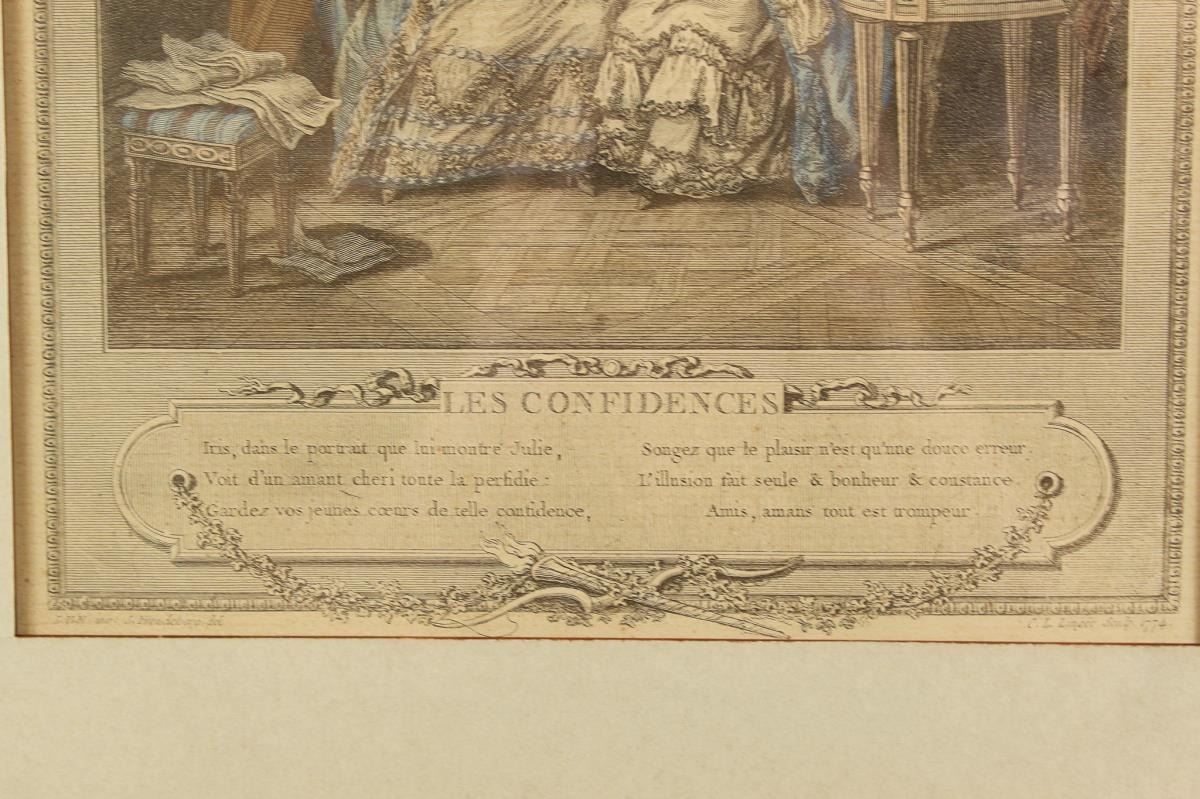 LES CONFIDENCES
Iris, dans le portrait que lui montre Julie,
Voit d'un amant cheri toute la perfidie :
Gardez vos jeunes cœurs de telle confidence,
Songez que le plaisir n'est qu'une douce erreur.
L'illusion fait seule & bonheur & constance.
Amis, amans tout est trompeur.
S. Freudeberg del.
C. L. Lingée Sculp. 1774.